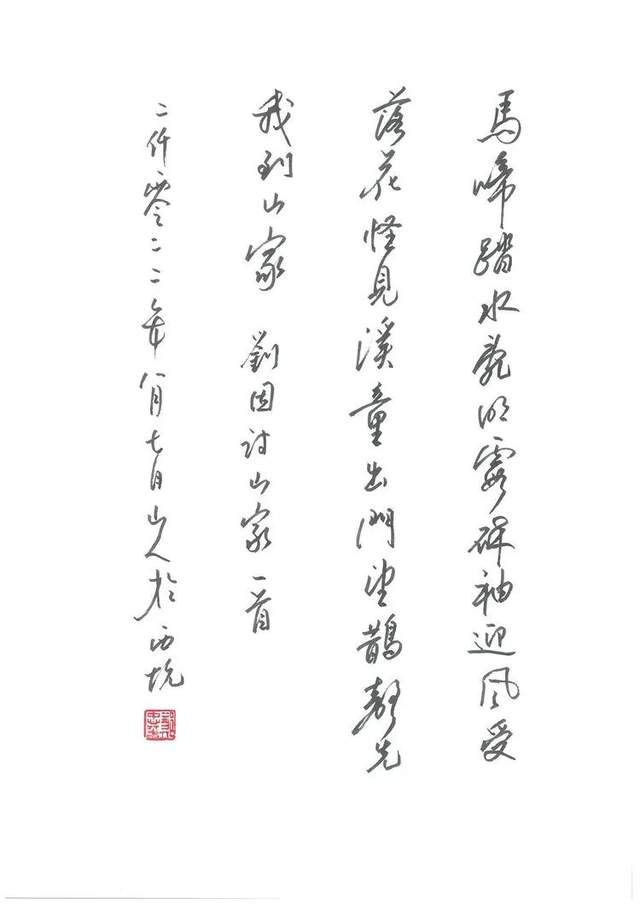 馬啼踏水亂明霞醉袖迎風受
落花怪見溪童出門望鵲聲先
我到山家 劉因詩山家一首
二仟零二二年八月七日山人於西坑